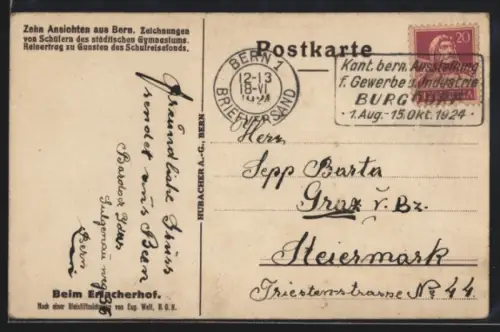 Zehn Ansichten aus Bern. Zeichnungen
von Schülern des städtischen Gymnasiums.
Reinertrag zu Gunsten des Schulreisefonds.
Postkarte
BERN 1
12-13
18·VI
1924
BRIEFVERSAND
20
Kant. bern. Ausstellung
f. Gewerbe u. Industrie
BURGDORF
·1.Aug.-15.Okt.1924·
Freundliche Grüsse
sendet aus Bern
Sulgenauweg 35
Bern
HUBACHER A.-G., BERN
Herrn
Sepp Barta
Graz
Steiermark
Triestenstrasse No 44
Beim Erlacherhof.
Nach einer Bleistiftzeichnung von Eug.